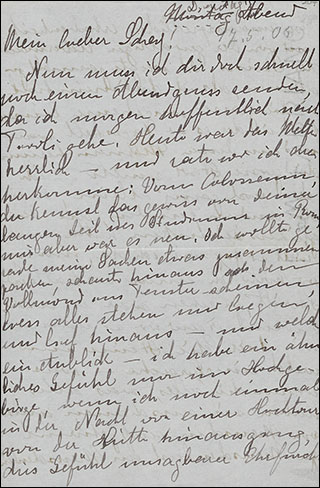 Montag Abend
Mein lieber Schatz!
Nun muss ich dir doch schnell
noch einen Abendgruss senden,
da ich morgen hoffentlich nach
Tivoli gehe. Heute war das Wetter
herrlich – und rate wo ich eben
herkomme: Vom Colosseum,
du kennst das gewiss von deinem
langen Studium in Rom
mir aber war es neu. Ich wollte ge-
rade meine Sachen etwas zusammen
packen, schaute hinaus den
Vollmond ans Fenster scheinen
liess alles stehen und liegen,
und lief hinaus – und welch
ein Anblick – ich habe ein ähn
liches Gefühl nur im Hochge-
birge, wenn ich noch einmal
in der Nacht vor einer Hochtour
von der Hütte hinausgang,
dies Gefühl unsagbarer Ehrfurcht